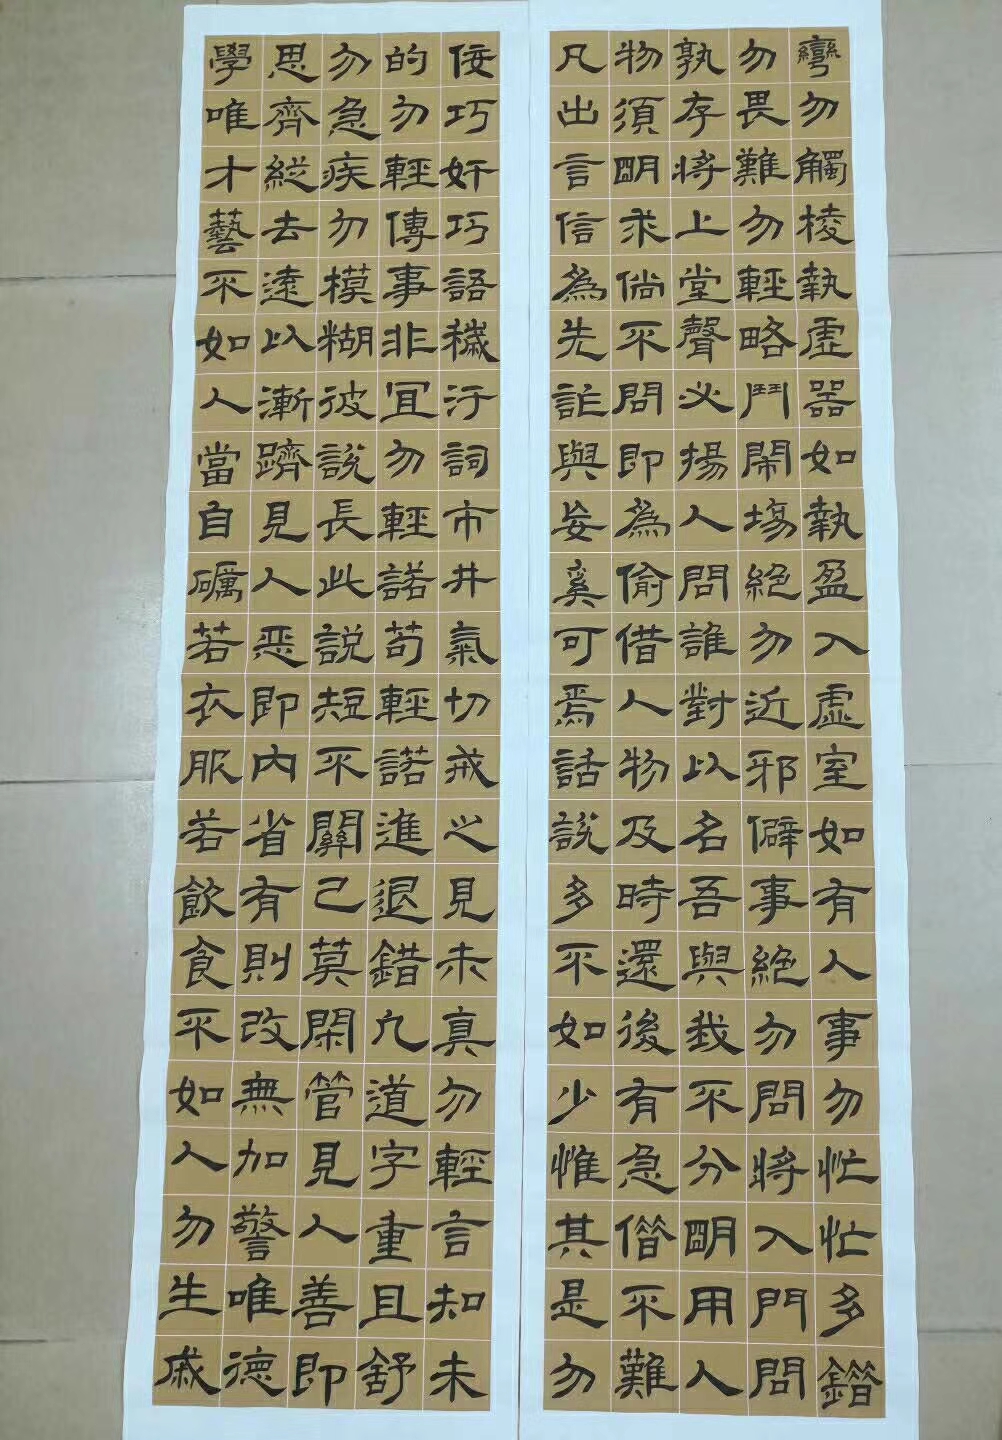 彎勿觸棱執虛器如執盈入虛室如有人事勿忙忙多錯
勿畏難勿輕略鬥鬧場絕勿近邪僻事絕勿問將入門問
孰存將上堂聲必揚人問誰對以名吾與我不分明用人
物須明求倘不問即為偷借人物及時還後有急借不難
凡出言信為先詐與妄奚可焉話說多不如少惟其是勿
佞巧奸巧語穢汙詞市井氣切戒之見未真勿輕言知未
的勿輕傳事非宜勿輕諾苟輕諾進退錯凡道字重且舒
勿急疾勿模糊彼說長此說短不關己莫閑管見人善即
思齊縱去遠以漸躋見人惡即內省有則改無加警唯德
學唯才藝不如人當自礪若衣服若飲食不如人勿生戚